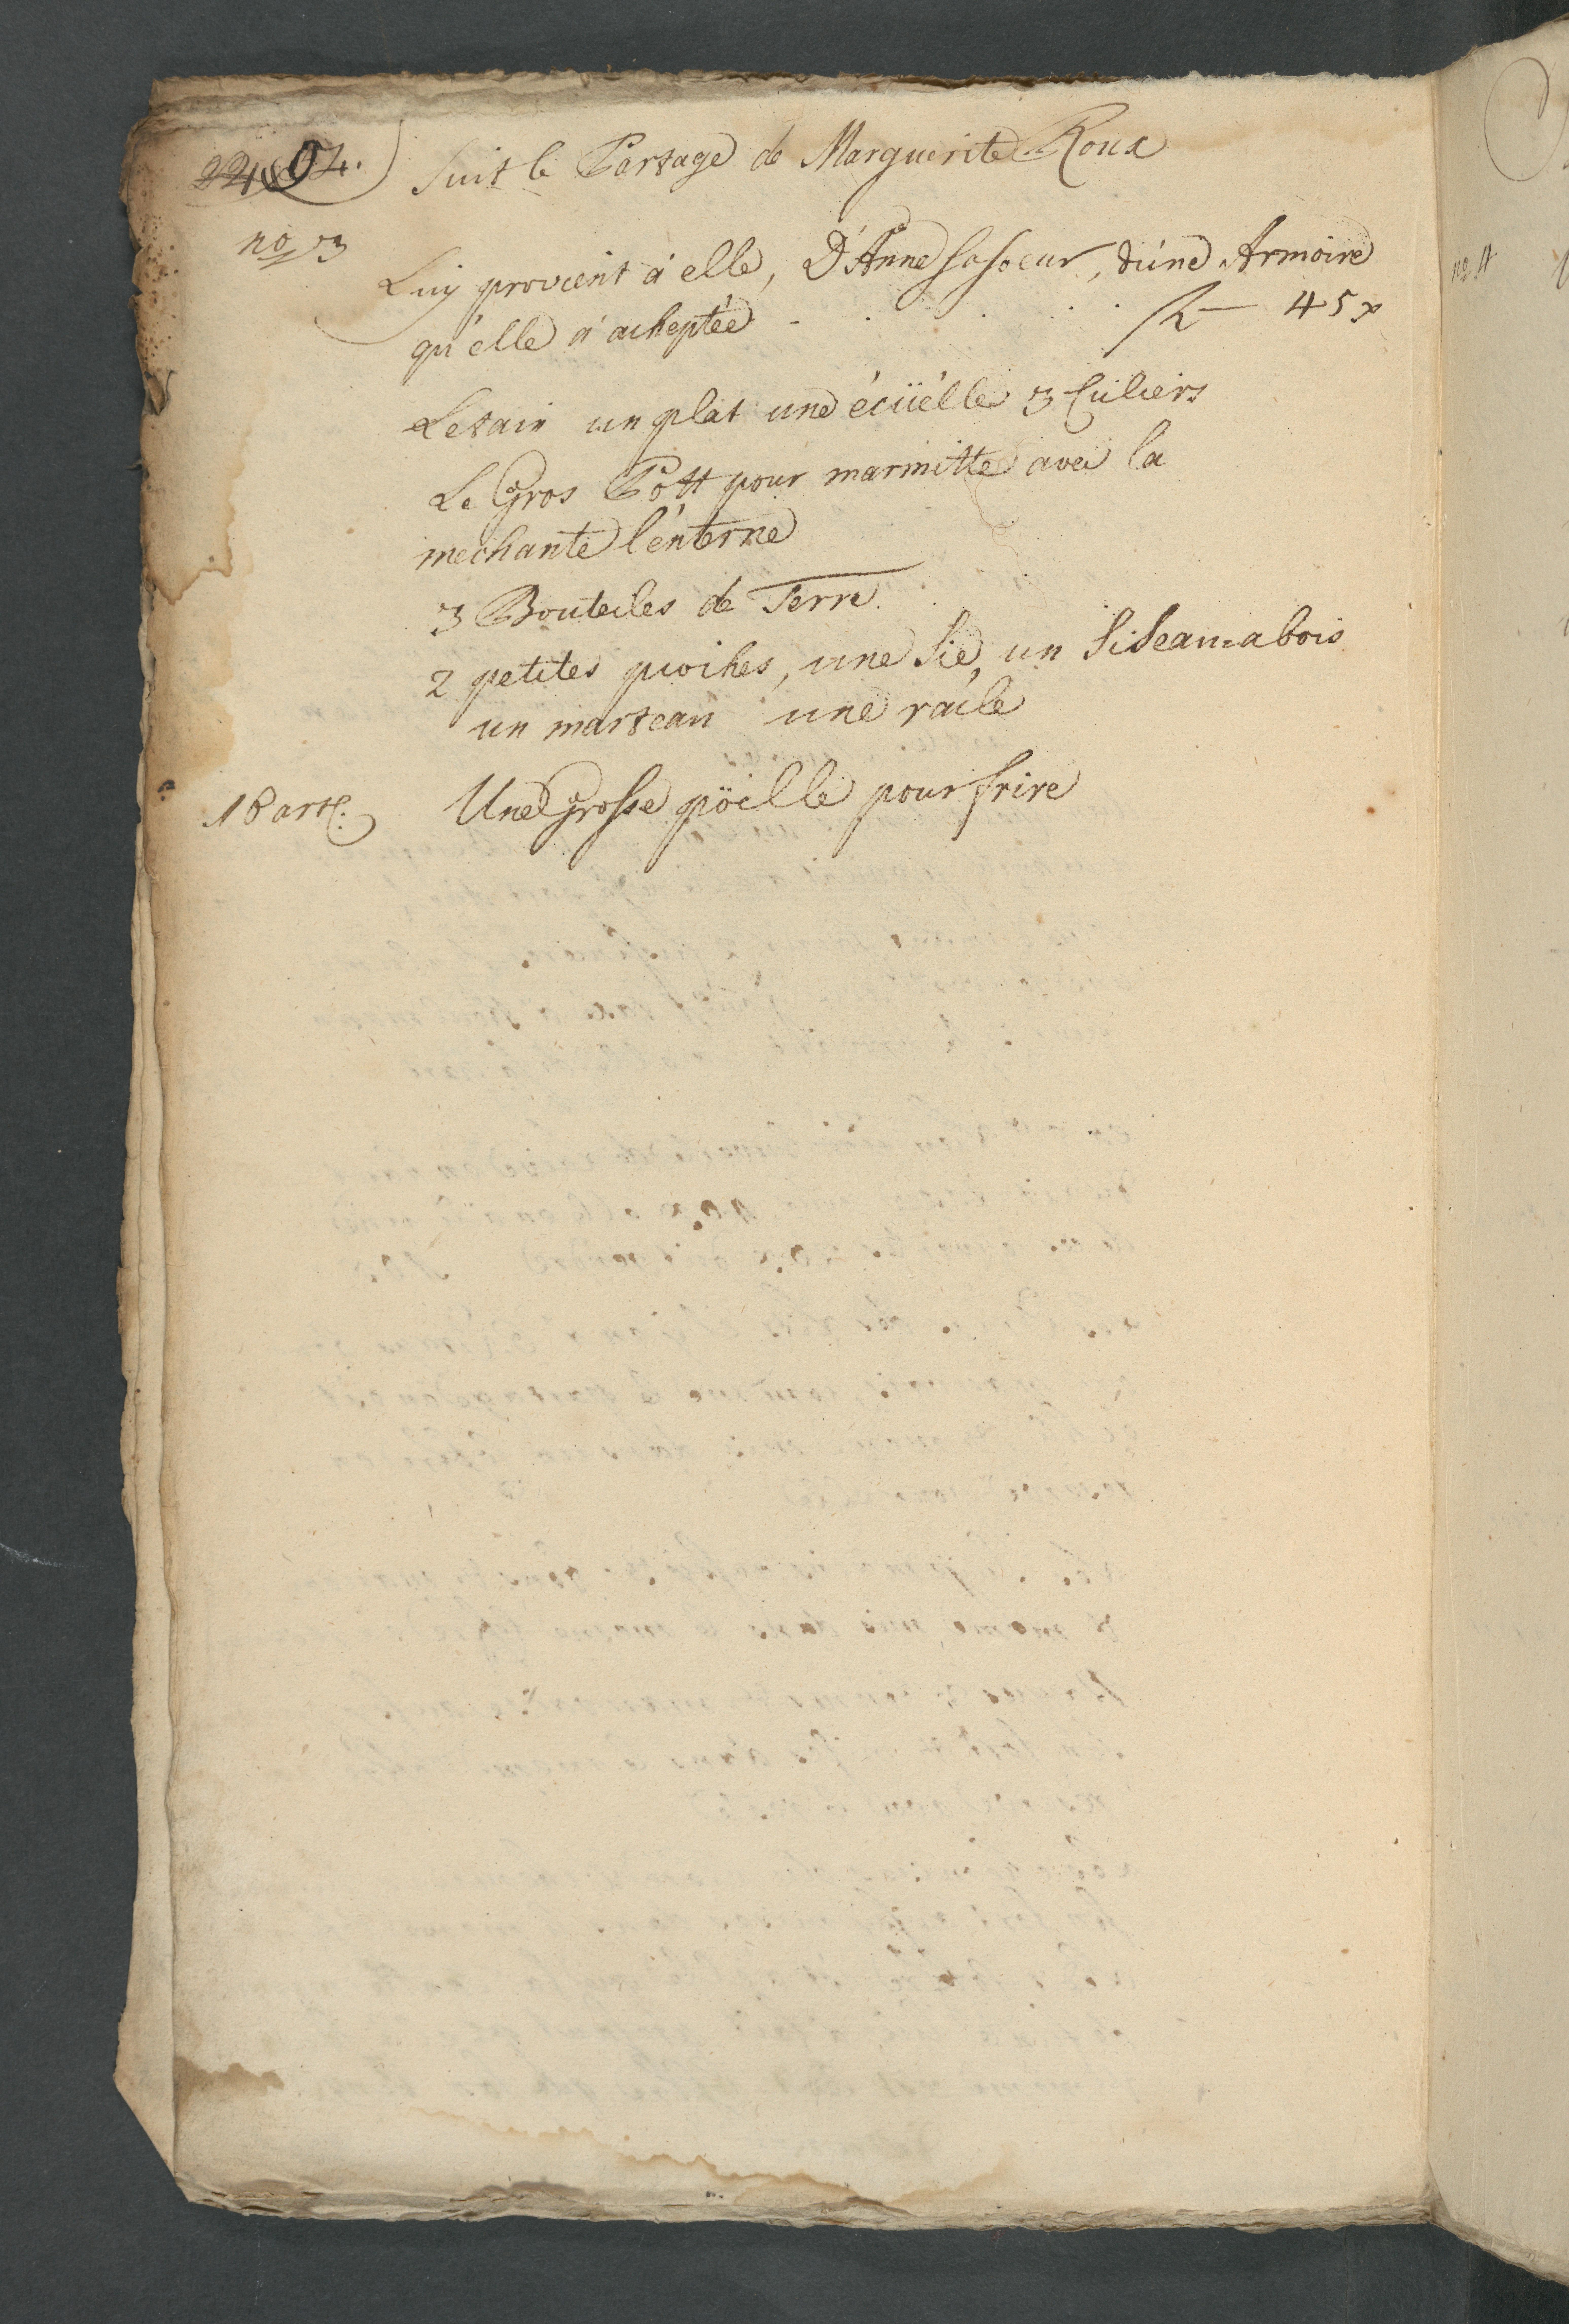 94.
Suit le Partage de Marguerite Roux
no 3
Luy provient à elle, D'Anne sa soeur, d'une Armoire
qu'elle a acheptée - . . . . . 45 x
Letain un plat une écüélle 3 Culiers
Le Gros Pott pour marmitte avec la
mechante lénterne
3 Bouteiles de Terre
2 petites pioches, une Sie, un Siseau=a bois
un marteau une racle
18 artl. Une Grosse pöelle pour frire
no 4